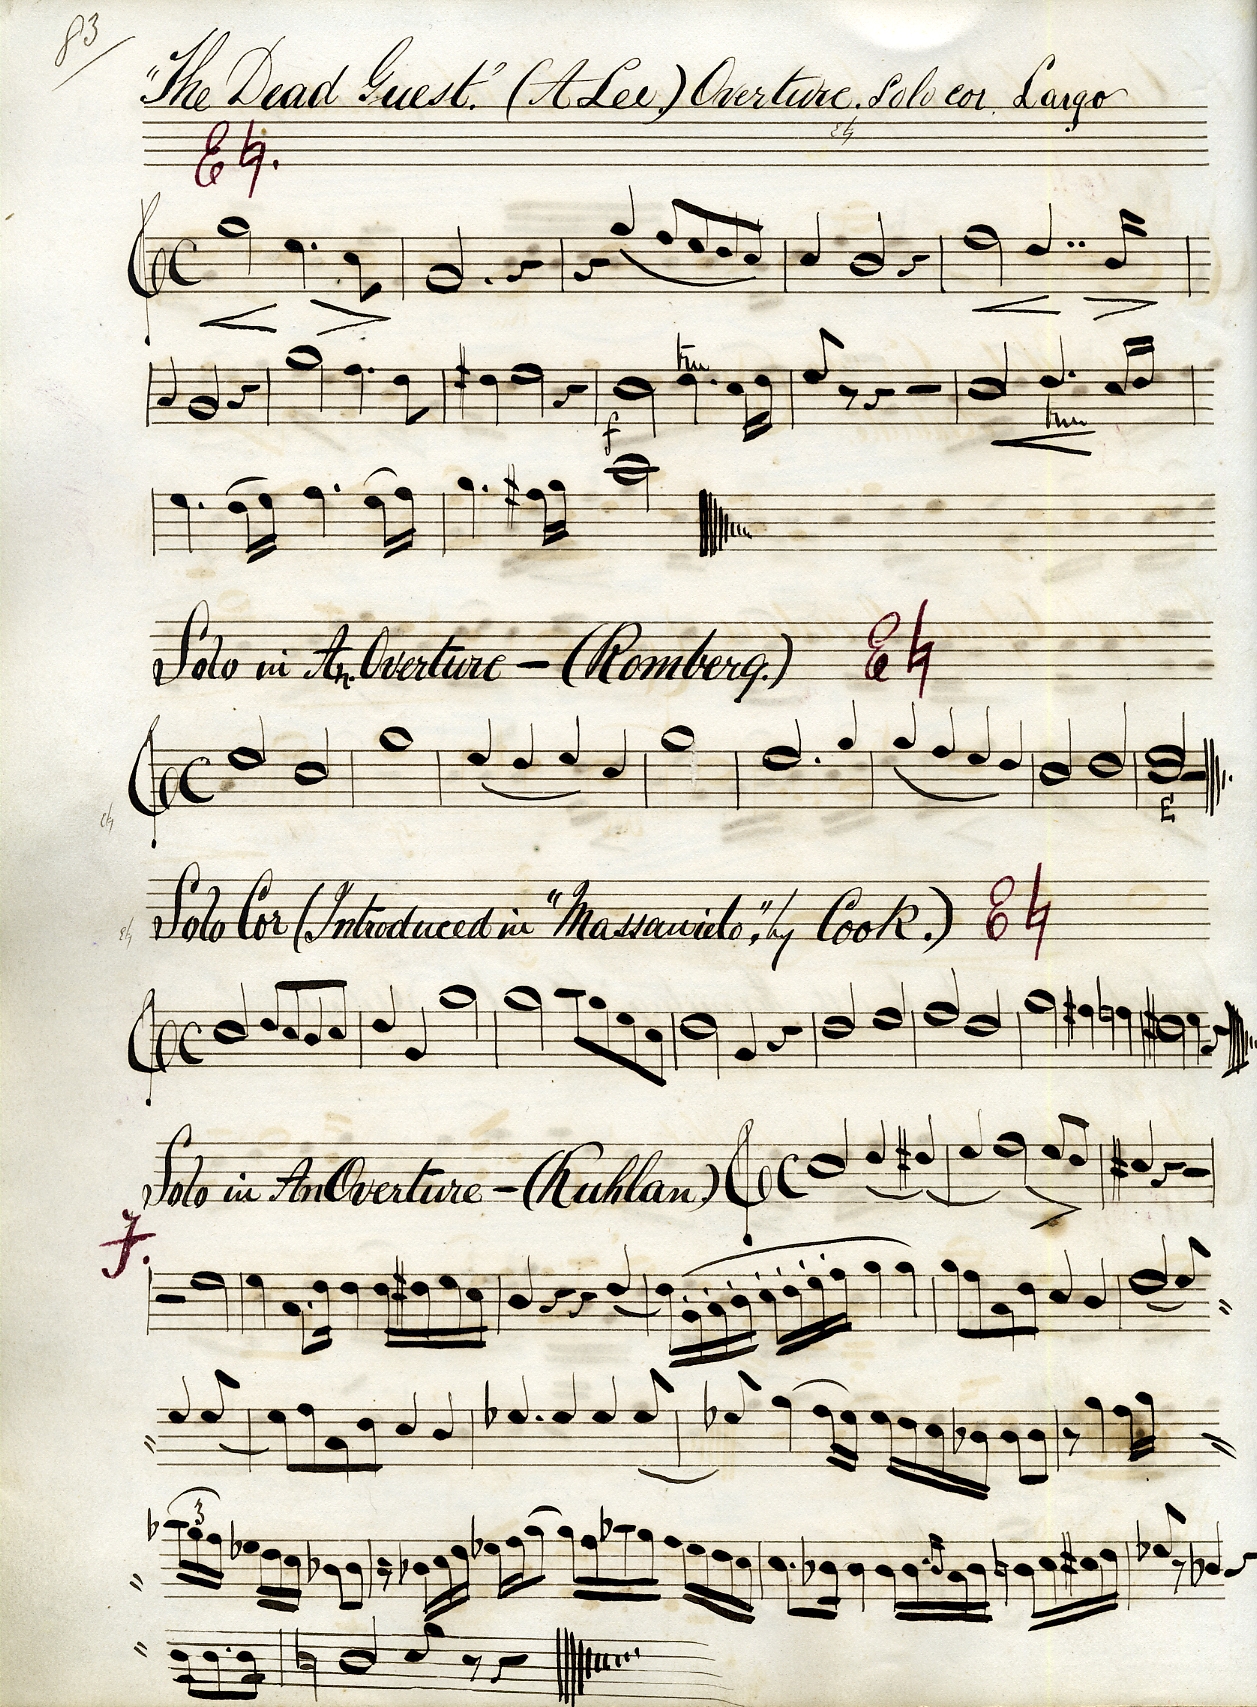 83
"The Dead Guest." (A Lee) Overture. Solo cor. Largo
E♮
E♮.
tr
f
tr
Solo in An Overture – (Romberg.) E♮
E
e♮
Solo Cor (Introduced in "Massaniello", by Cook.) E♮
E♮
Solo in An Overture – (Kuhlan)
F.
3